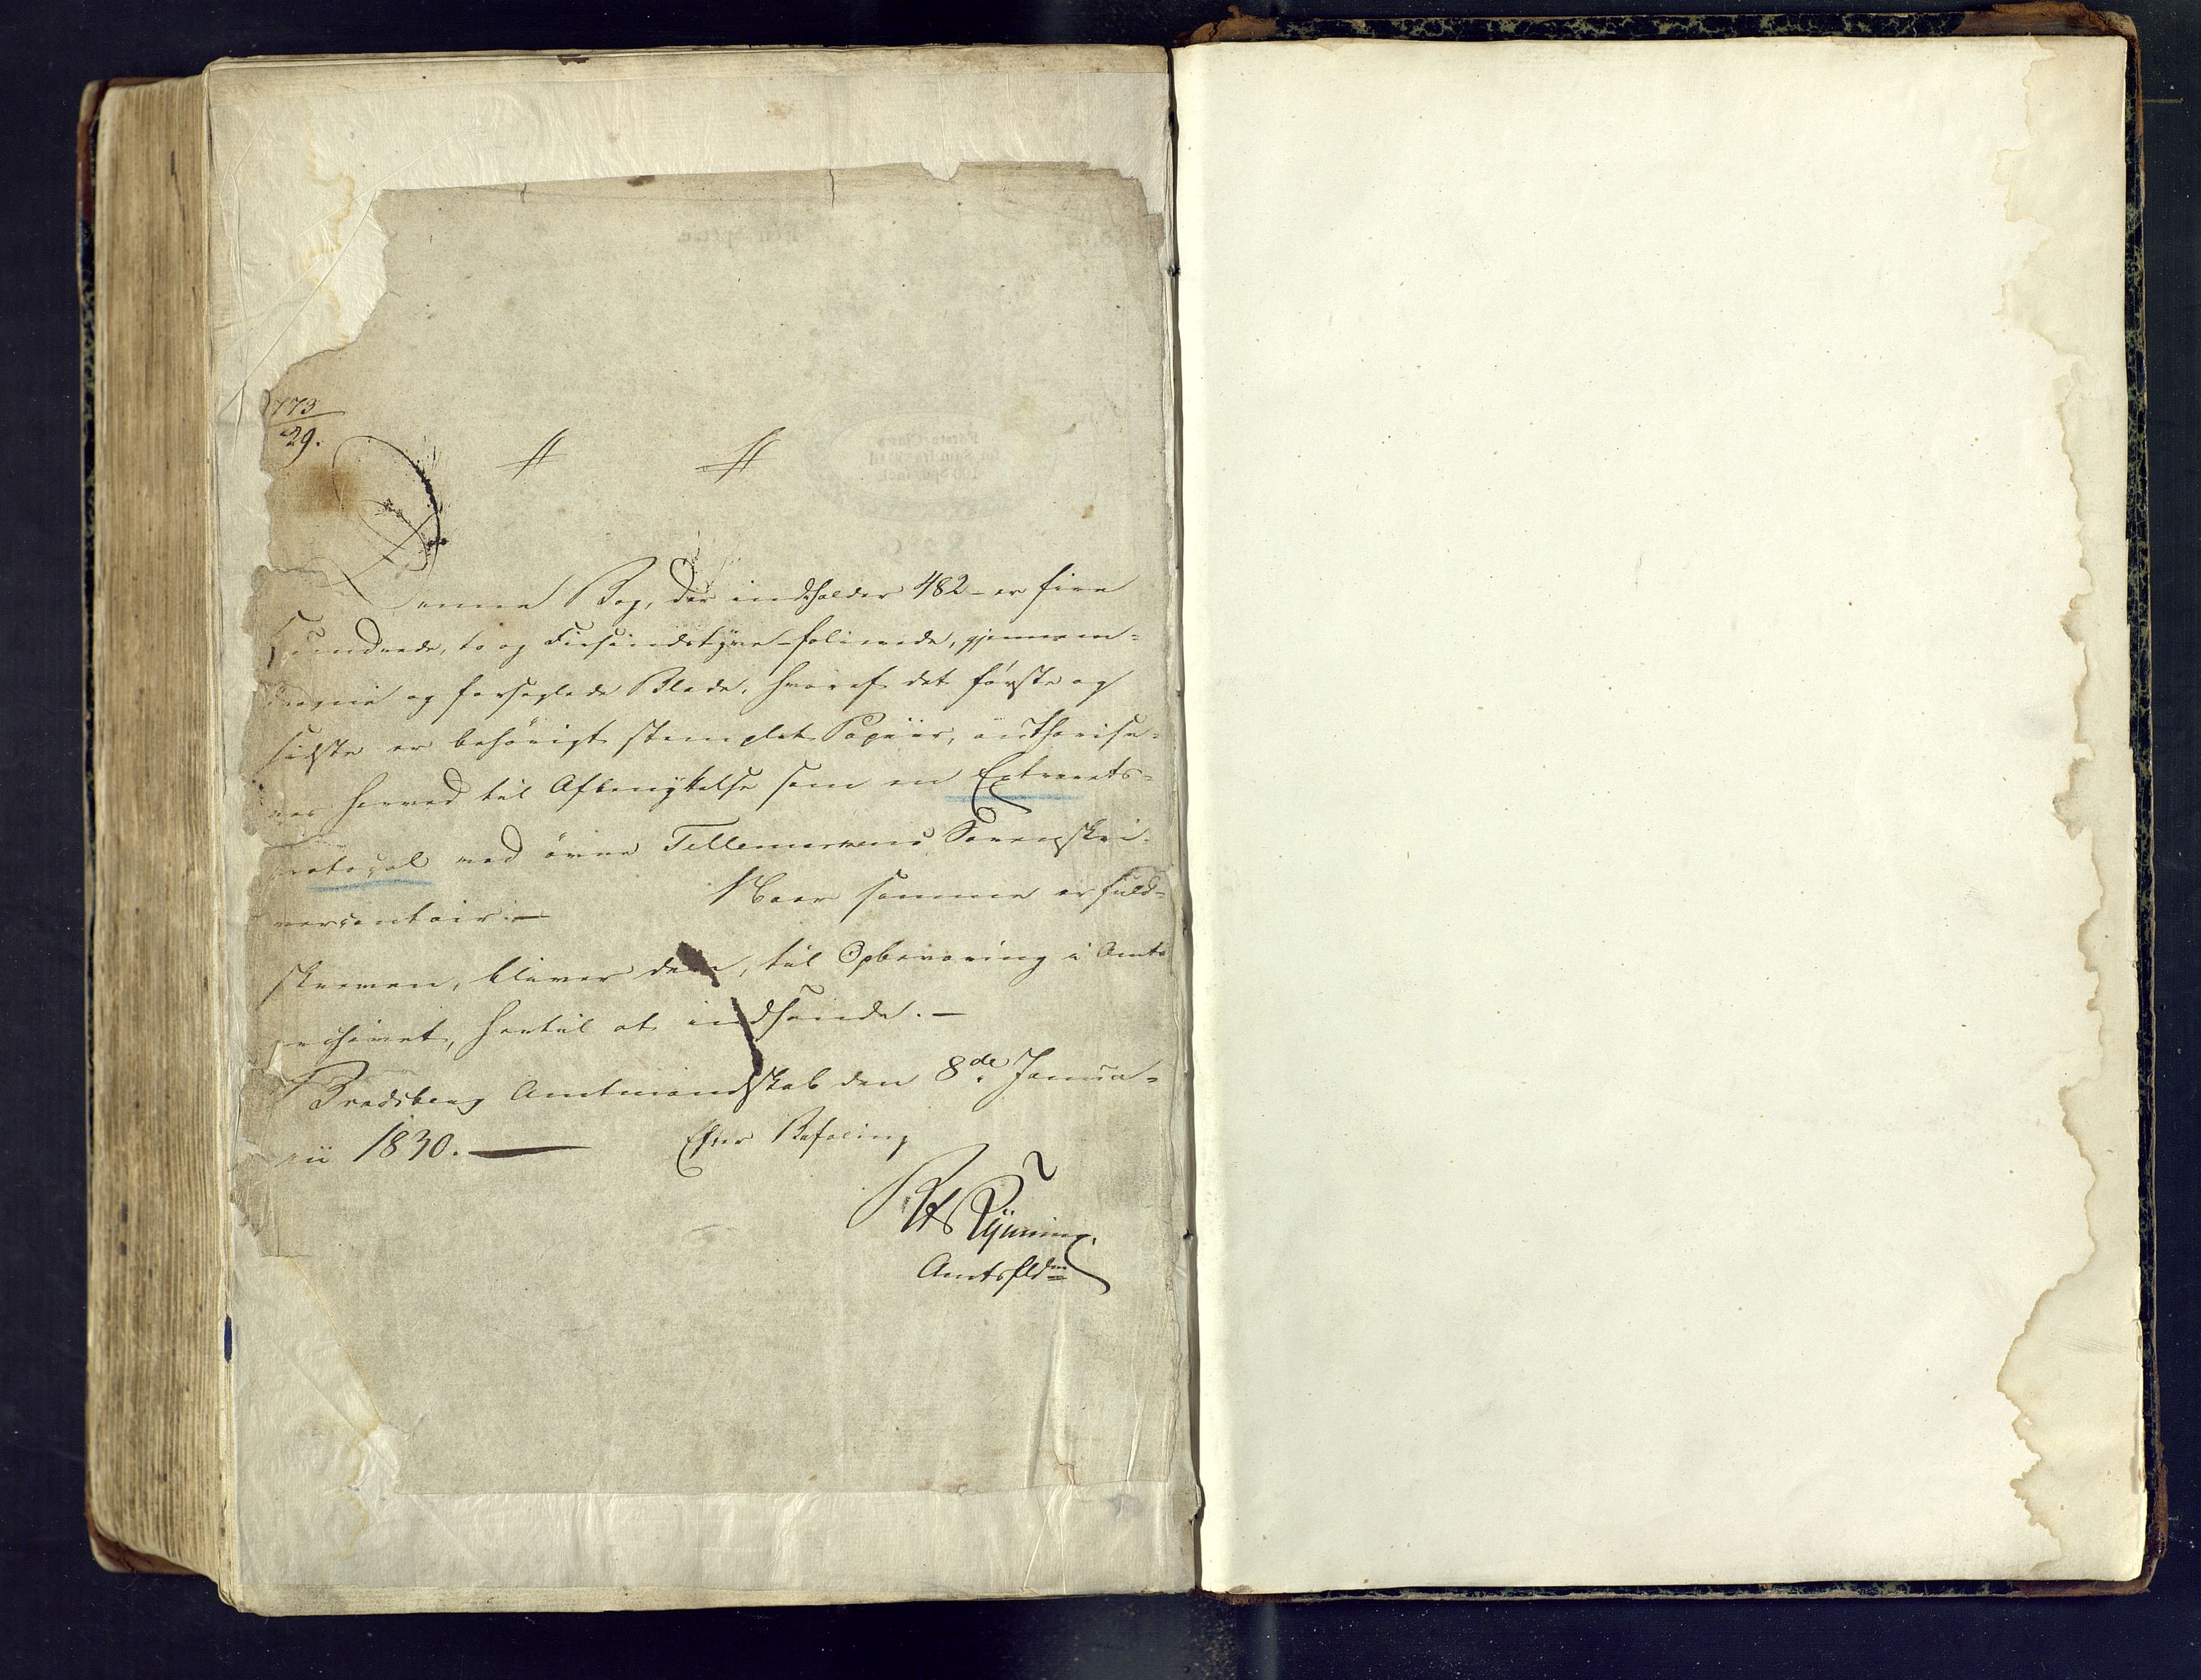 773
29.
Denne Bog, der indeholder 482 - er fire
Hundrede, to og Firsindstyve - folierede, gjennem-
dragne og forseglede Blade, hvoraf det første og
sidste er behørigt stemplet Papiir, authorise-
res herved til Afbenyttelse som en Extracts-
protocol ved øvre Tellemarkens Sorenskri-
vercontoir. —
Naar samme er fuld-
skreven, bliver den, til Opbevaring i Amts
archivet, hertil at indsende. —
Bradsberg Amtmandskab den 8de Janua-
rii 1830. —
Efter Befaling
Rynning.
Amtsfldm